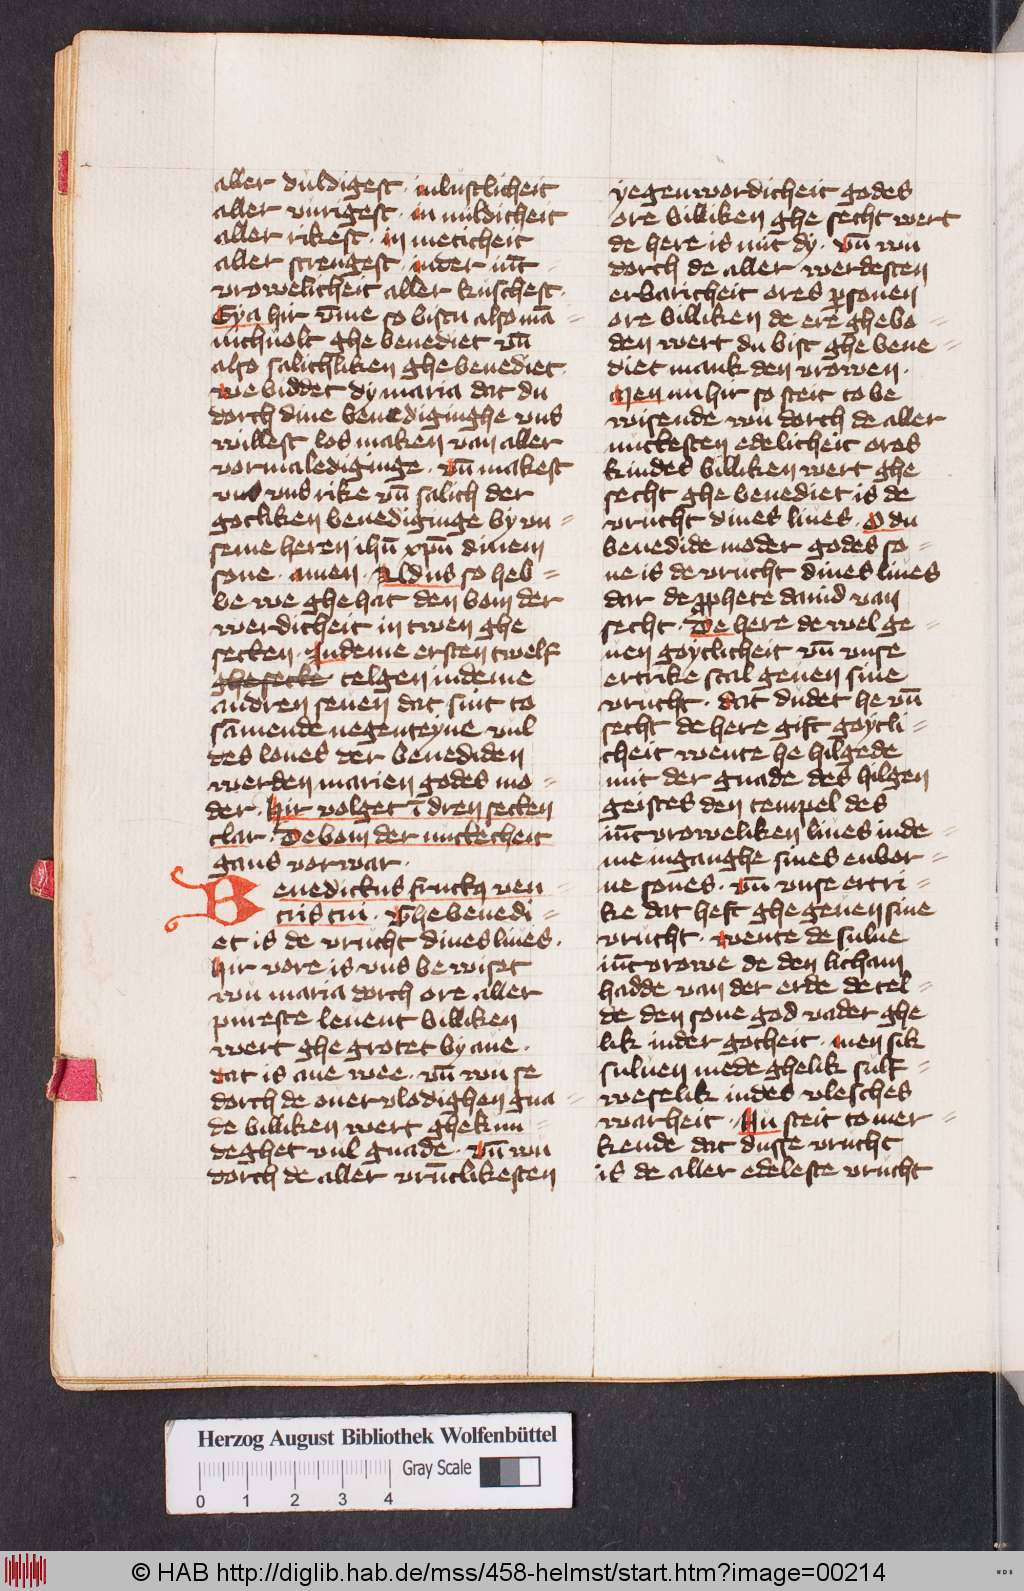 aller duldigest · in lustlicheit
aller vurigest · in mildicheit
aller rikest · in meticheit
aller strengest · in der iūc=
vrowelicheit aller kuschest ·
Eya hir vm̄e so bistu also mā=
nichuolt ghe benediet vn̄
also salichliken ghe benediet
we biddet dy maria dat du
dorch dine benediginghe vns
willest los maken van aller
vormaledigīnge · vn̄ makest
vns rike vn̄ salich der
gotliken benedigīnge by vn=
seme heren ihū xp̄m dinem
sone · amen · Aldus so heb=
be we ghe hat den bom der
werdicheit in twen ghe
secken · In deme ersten twelf
ghesecke telgen in deme
andren seuen dat sint to
sāmende negenteyne vul
des loues der benediden
werden marien godes mo=
der · Hir volget ī dren secken
clar · De bom der nutticheit
gans vor war ·
Benedictus fructus ven=
tris tui · Ghe benedi=
et is de vrucht dines liues ·
Hir vore is vns be wiset
wu maria dorch ore aller
pureste leuent billiken
wert ghe grotet by aue ·
dat is ane wee · vn̄ wu se
dorch de ouer vlodighen gna=
de billiken wert ghekun=
deghet vul gnade · Vn̄ wu
dorch de aller vrūtlikesten
yegenwordicheit godes
ore billiken ghe secht wert
de here is mit dy · vn̄ wu
dorch de aller werdesten
erbaricheit ores p̄sonen
ore billiken de ere ghe bo=
den wert du bist ghe bene=
diet mank den vrowen ·
Men nu hir so steit to be
wisende wu dorch de aller
nuttesten edelicheit ores
kindes billiken wert ghe
secht ghe benediet is de
vrucht dines liues · O du
benedide moder godes so=
ne is de vrucht dines liues
dar de ꝓphete dauid van
secht · De here de wel ge=
uen goytlicheit vn̄ vnse
ertrike scal geuen sine
vrucht · dat dudet he vn̄
secht de here gift goytli=
cheit wente he hilgede
mit der gnade des hilgen
geistes den tempel des
iūcvroweliken liues in de=
me inganghe sines enbor=
ne sones · Vn̄ vnse ertri=
ke dat heft ghe geuen sine
vrucht · wente de sulue
iūcvrowe de den licham
hadde van der erde de tel=
de den sone god vader ghe
lik in der gotheit · men sik
suluen mede ghelik sulf=
weselik in des vlesches
warheit · Nu steit to mer=
kende dat dusse vrucht
is de aller edeleste vrucht
Herzog August Bibliothek Wolfenbüttel
Gray Scale
0 1 2 3 4
© HAB http://diglib.hab.de/mss/458-helmst/start.htm?image=00214